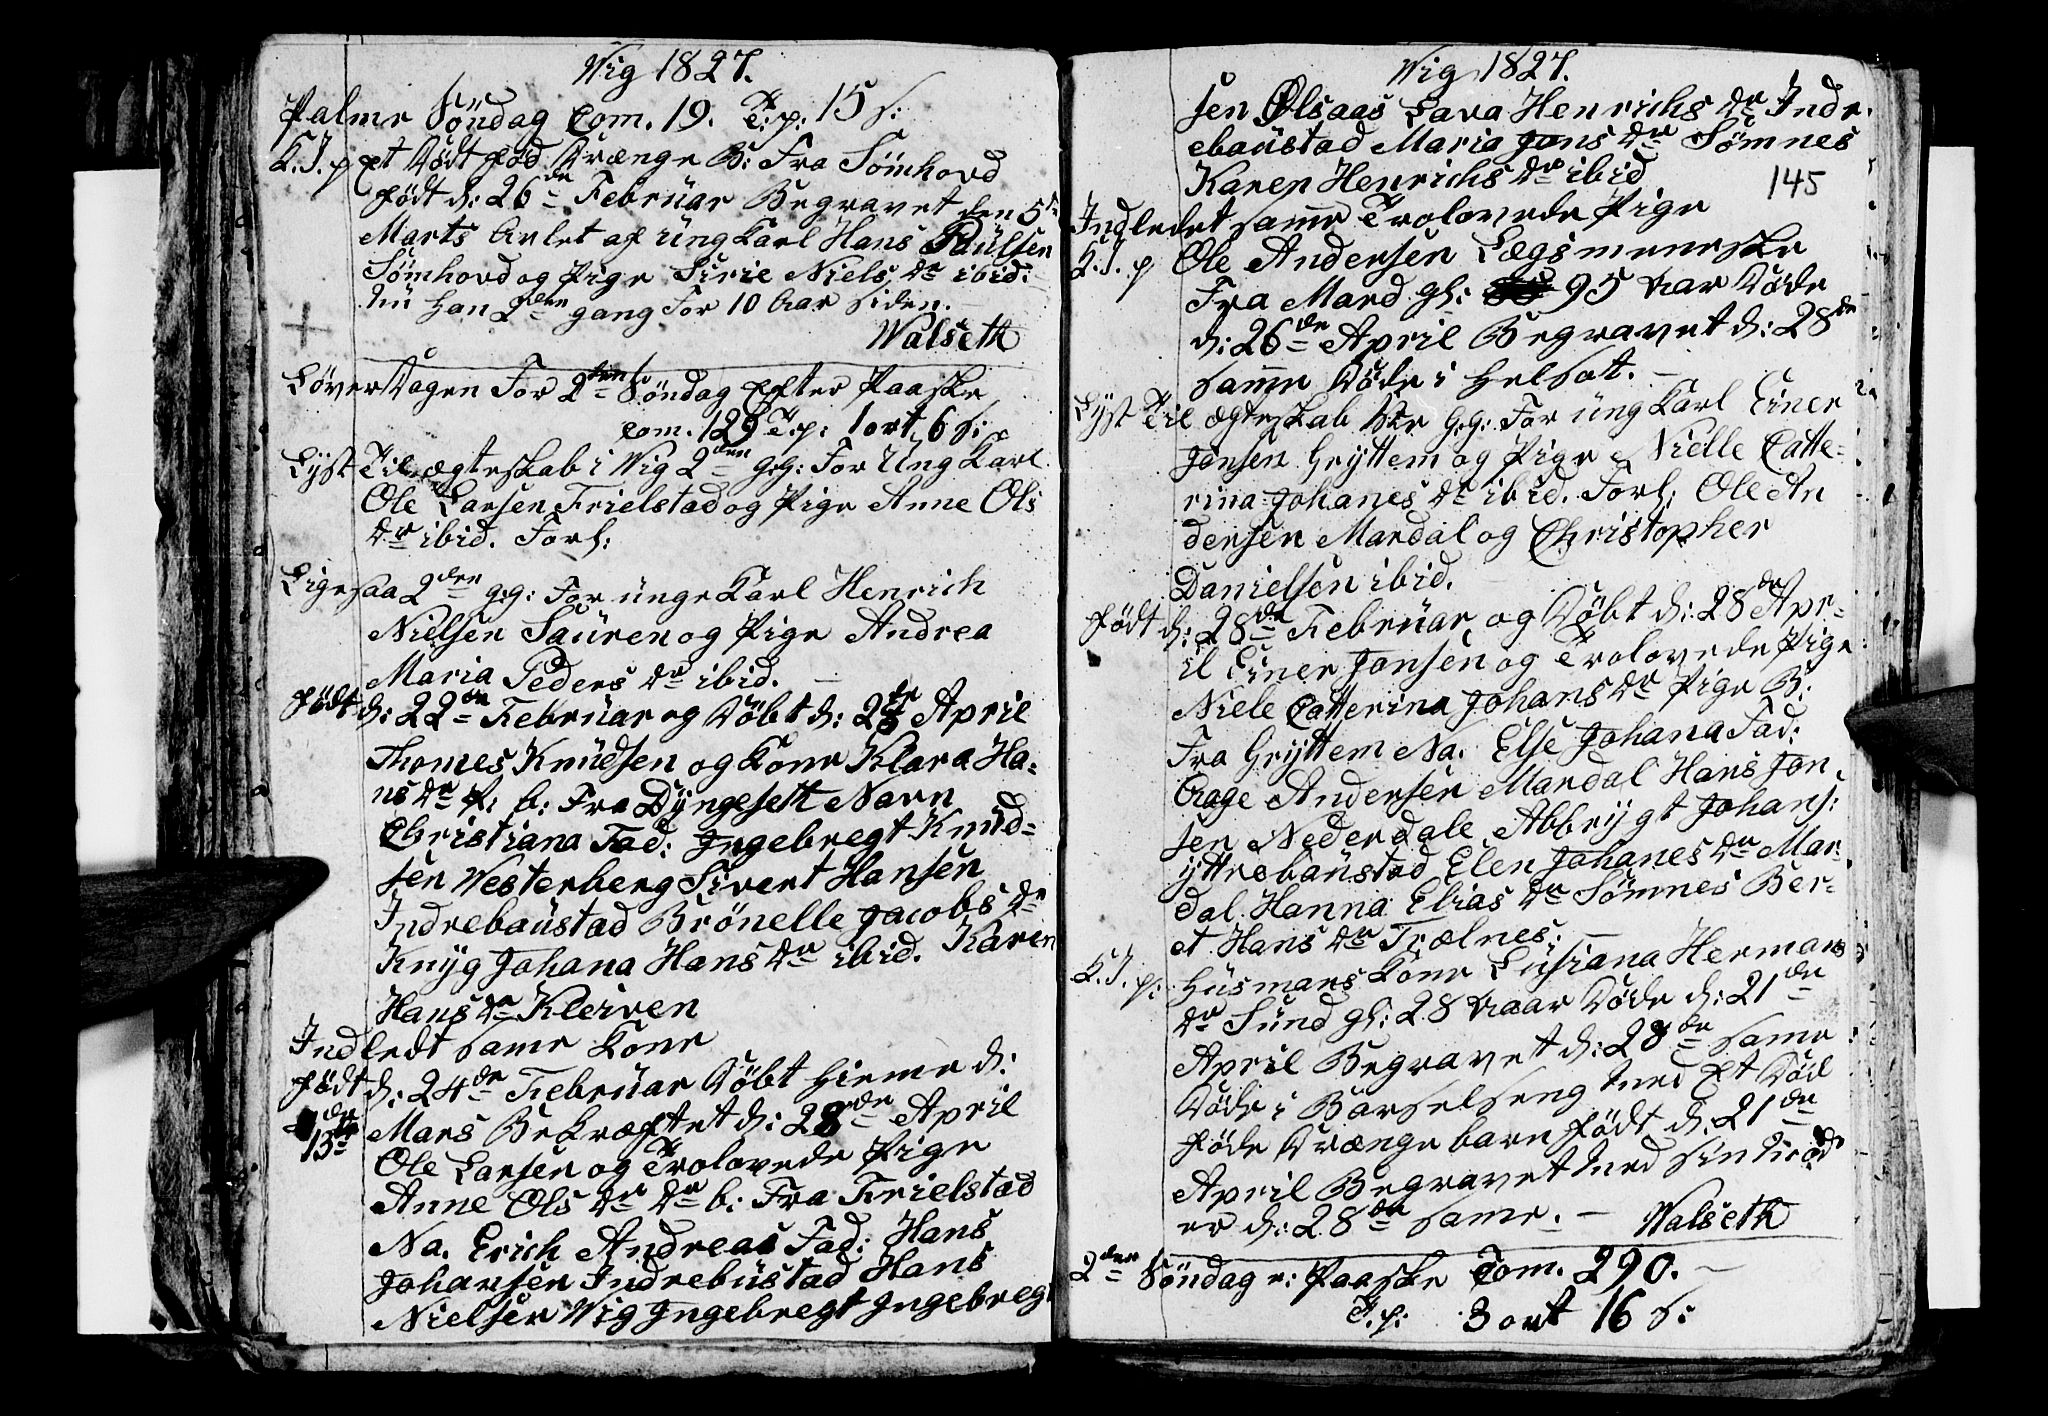 Wig 1827.
Palme Söndag Com. 19. T:p: 15 s:
K.J.p Et Död fød Drænge B: Fra Sömhovd
født d: 26de Februar Begravet den 5te
Marts Avlet af üng Karl Hans Paülsen
Sömhovd og Pige Sirie Niels dr ibid:
nü han 2den gang For 10 Aar siden.
Walseth
Løver Dagen For 2den Söndag Efter Paaske
Com. 129 T.p: 1 ort 6 s:
Lyst Til ægteskab i Wig 2den g:g: For Üng Karl
Ole Larsen Frielstad og Pige Anne Ols
dr ibid. Forl:
Ligesaa 2den g:g: For ünge Karl Henrich
Nielsen Saüren og Pige Andrea
Maria Peders dr ibid.
født d: 22de Februar og Döbt d: 28de April
Thomes Knüdsen og Kone Klara Ha-
ns dr P: b: Fra Dyngesett Navn
Christiana Fad: Ingebregt Knüd-
sen Westerberg Sivert Hansen
Indrebaüstad Brönelle Jacobs dr
Knyg Johana Hans dr ibid. Karen
Hans dr Kleiven
Indledt same Kone
født d: 24de Februar Döbt Hieme d:
13de Mars Bekræftet d: 28de April
Ole Larsen og Trolovede Pige
Anne Ols dr dr b: Fra Frielstad
Na. Erich Andreas Fad: Hans
Johansen Indrebüstad Hans
Nielsen Wig Ingebregt Ingebregt
Wig 1827.
sen Ølsaas Lava Henrichs dr Indr
ebaüstad Maria Jons dr Sømnes
Karen Henrichs dr ibid
145
Indledet same Trolovede Pige
K.J.p Ole Andersen Lægsmeneske
Fra Mard gl: 95 Aar Döde
d: 26de April Begravet d: 28de
same Döde i Helsot.
Lyst Til ægteskab 3die g:g: For üng Karl Einer
Jonsen Gryttem og Pige Nielle Catte-
rina Johanes dr ibid. Forl: Ole An
dersen Mardal og Christopher
Danielsen ibid.
født d: 28de Februar og Döbt d: 28de Apr-
il Einer Jonsen og Trolovede Pige
Niele Catterina Johans dr Pige B:
Fra Gryttem Na. Else Johana Fad:
Aage Andersen Mardal Hans Jon
sen Nederdale Abbrygt Johans:
yttrebaüstad Elen Johanes dr Mar-
dal Hanna Elias dr Sömnes Ber-
et Hans dr Trælnes:
K.J.p: Hüsmans Kone Lusiana Hermans
dr Sünd gl: 28 Aaar Döde d: 21de
April Begravet d: 28de same
Döde i Barselseng med Et Död
føde Drænge barn født d: 21de
April Begravet med sin
er d: 28de same. Walseth
2den Söndag e: Paaske Com. 290.
T.p: 3 ort 16 s: